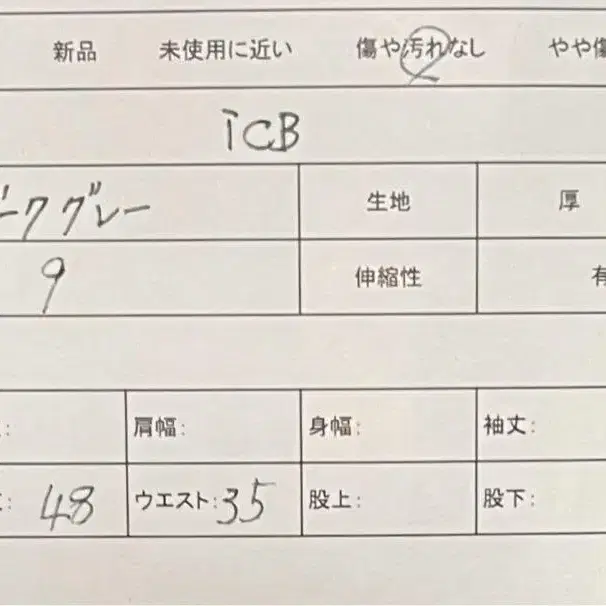 新品 未使用に近い 傷や汚れなし やや傷
iCB
ークグレー 生地 厚
9 伸縮性 有
: 肩幅: 身幅: 袖丈:
: 48 ウエスト:35 股上: 股下: